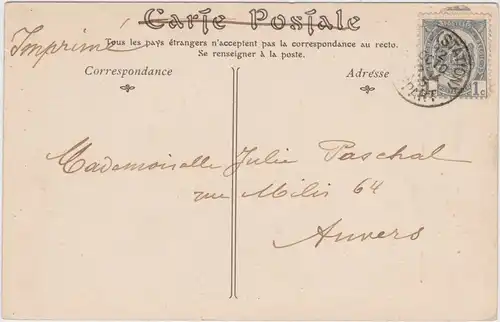 Carte Postale
Imprimé
Tous les pays étrangers n'acceptent pas la correspondance au recto.
Se renseigner à la poste.
Correspondance
Adresse
STATION
PART
1c
Mademoiselle Julie Paschal
rue Milis 64
Anvers